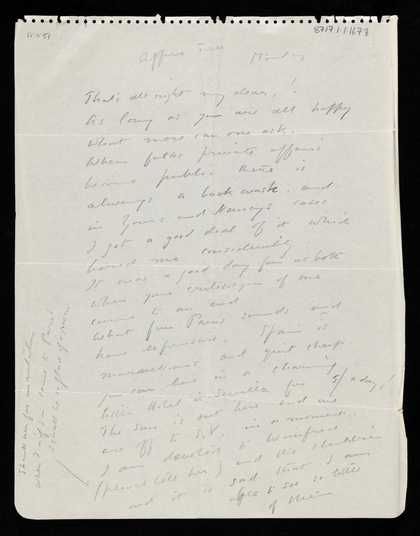 8717/1/1/1673
Monday
That's all right my dear,!
As long as you are all happy
what more can one ask.
When folks private affairs
become public there is
always a back wash, and
in yours and Nancys cases
I got a good deal of it which
bored me considerably
It was a good day for us both
when your criticism of me
came to an end
What fun Paris sounds and
how expensive. Spain is
marvellous and quite cheap.
you can live in a charming
little Hotel in Seville for 5/ a day!
The sun is out here and we
are off to S.V. in a moment.
I am devoted to Winifred
(please tell her) and the children
and it is sad that I am
able to see so little
of them
Thank you for invitation
when I if I come to Paris